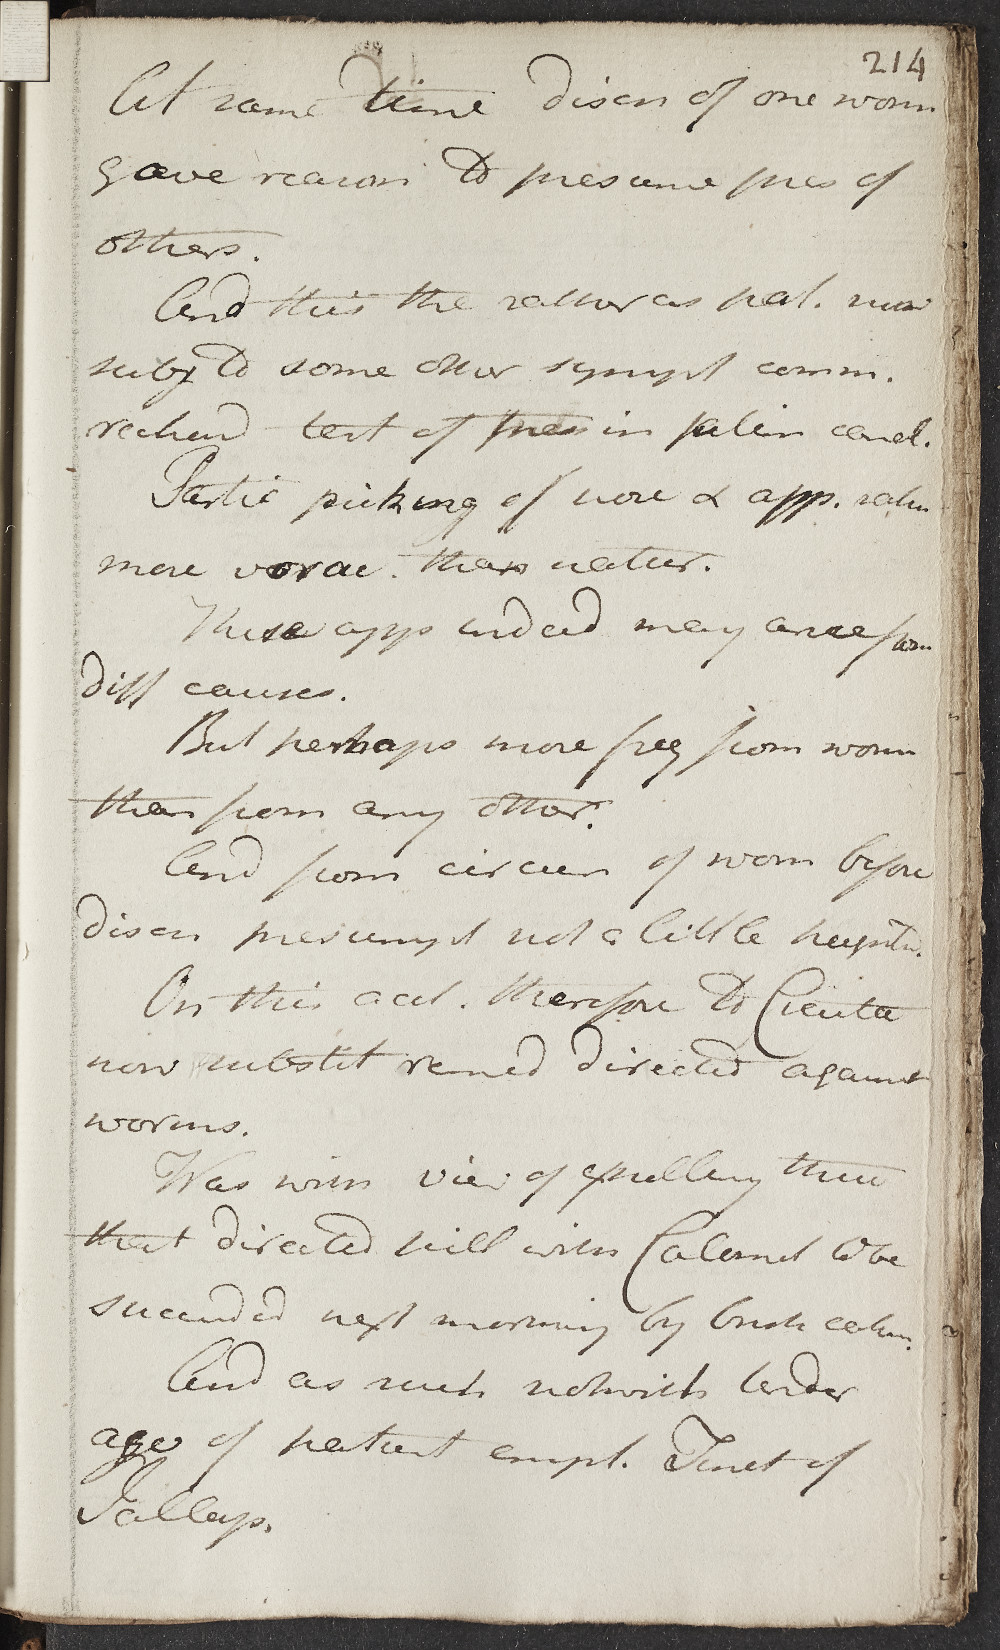 214
At same time discn of one worm
gave reason to presume pres of
others.
And this the rather as pat. now
subj to some other sympt comm.
reckond test of pres in alim canal.
Partic picking of nose & app. rather
more vorac. than natur.
These apps indeed may arise from
diff causes.
But perhaps more freq from worm
than from any other.
And from circum of worm before
discn presumpt not a little heightn.
On this acct. therefore to Cicuta
now substit remed directed against
worms.
Was with view of expelling them
that directed pill with Calomel to be
succeeded next morning by brisk cathn.
And as such notwith tender
age of patient empl. Tinct of
Jallap.